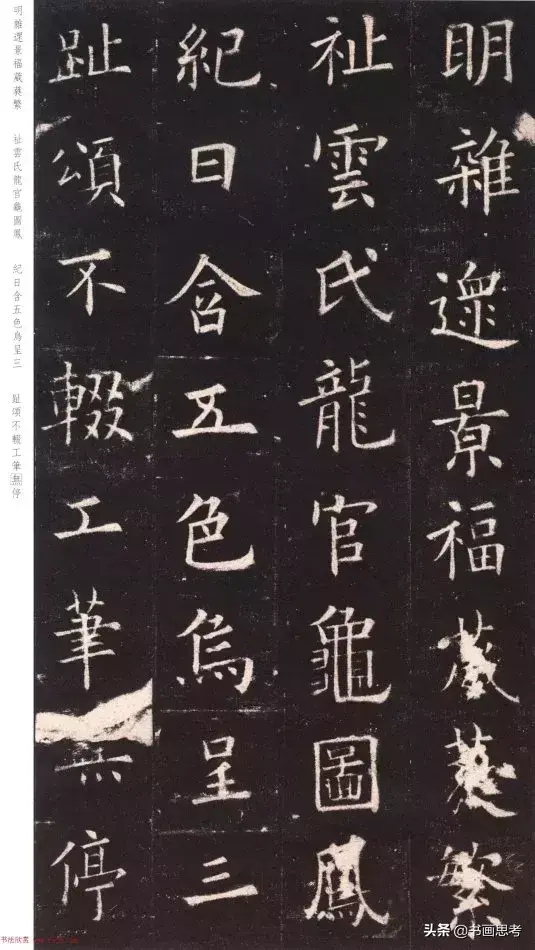 明雜遝景福葳蕤繁
祉雲氏龍官龜圖鳳
紀日含五色烏呈三
趾頌不輟工筆無停
明雜遝景福葳蕤繁　祉雲氏龍官龜圖鳳　紀日含五色烏呈三　趾頌不輟工筆無停
书法欣赏
头条 @书画思考